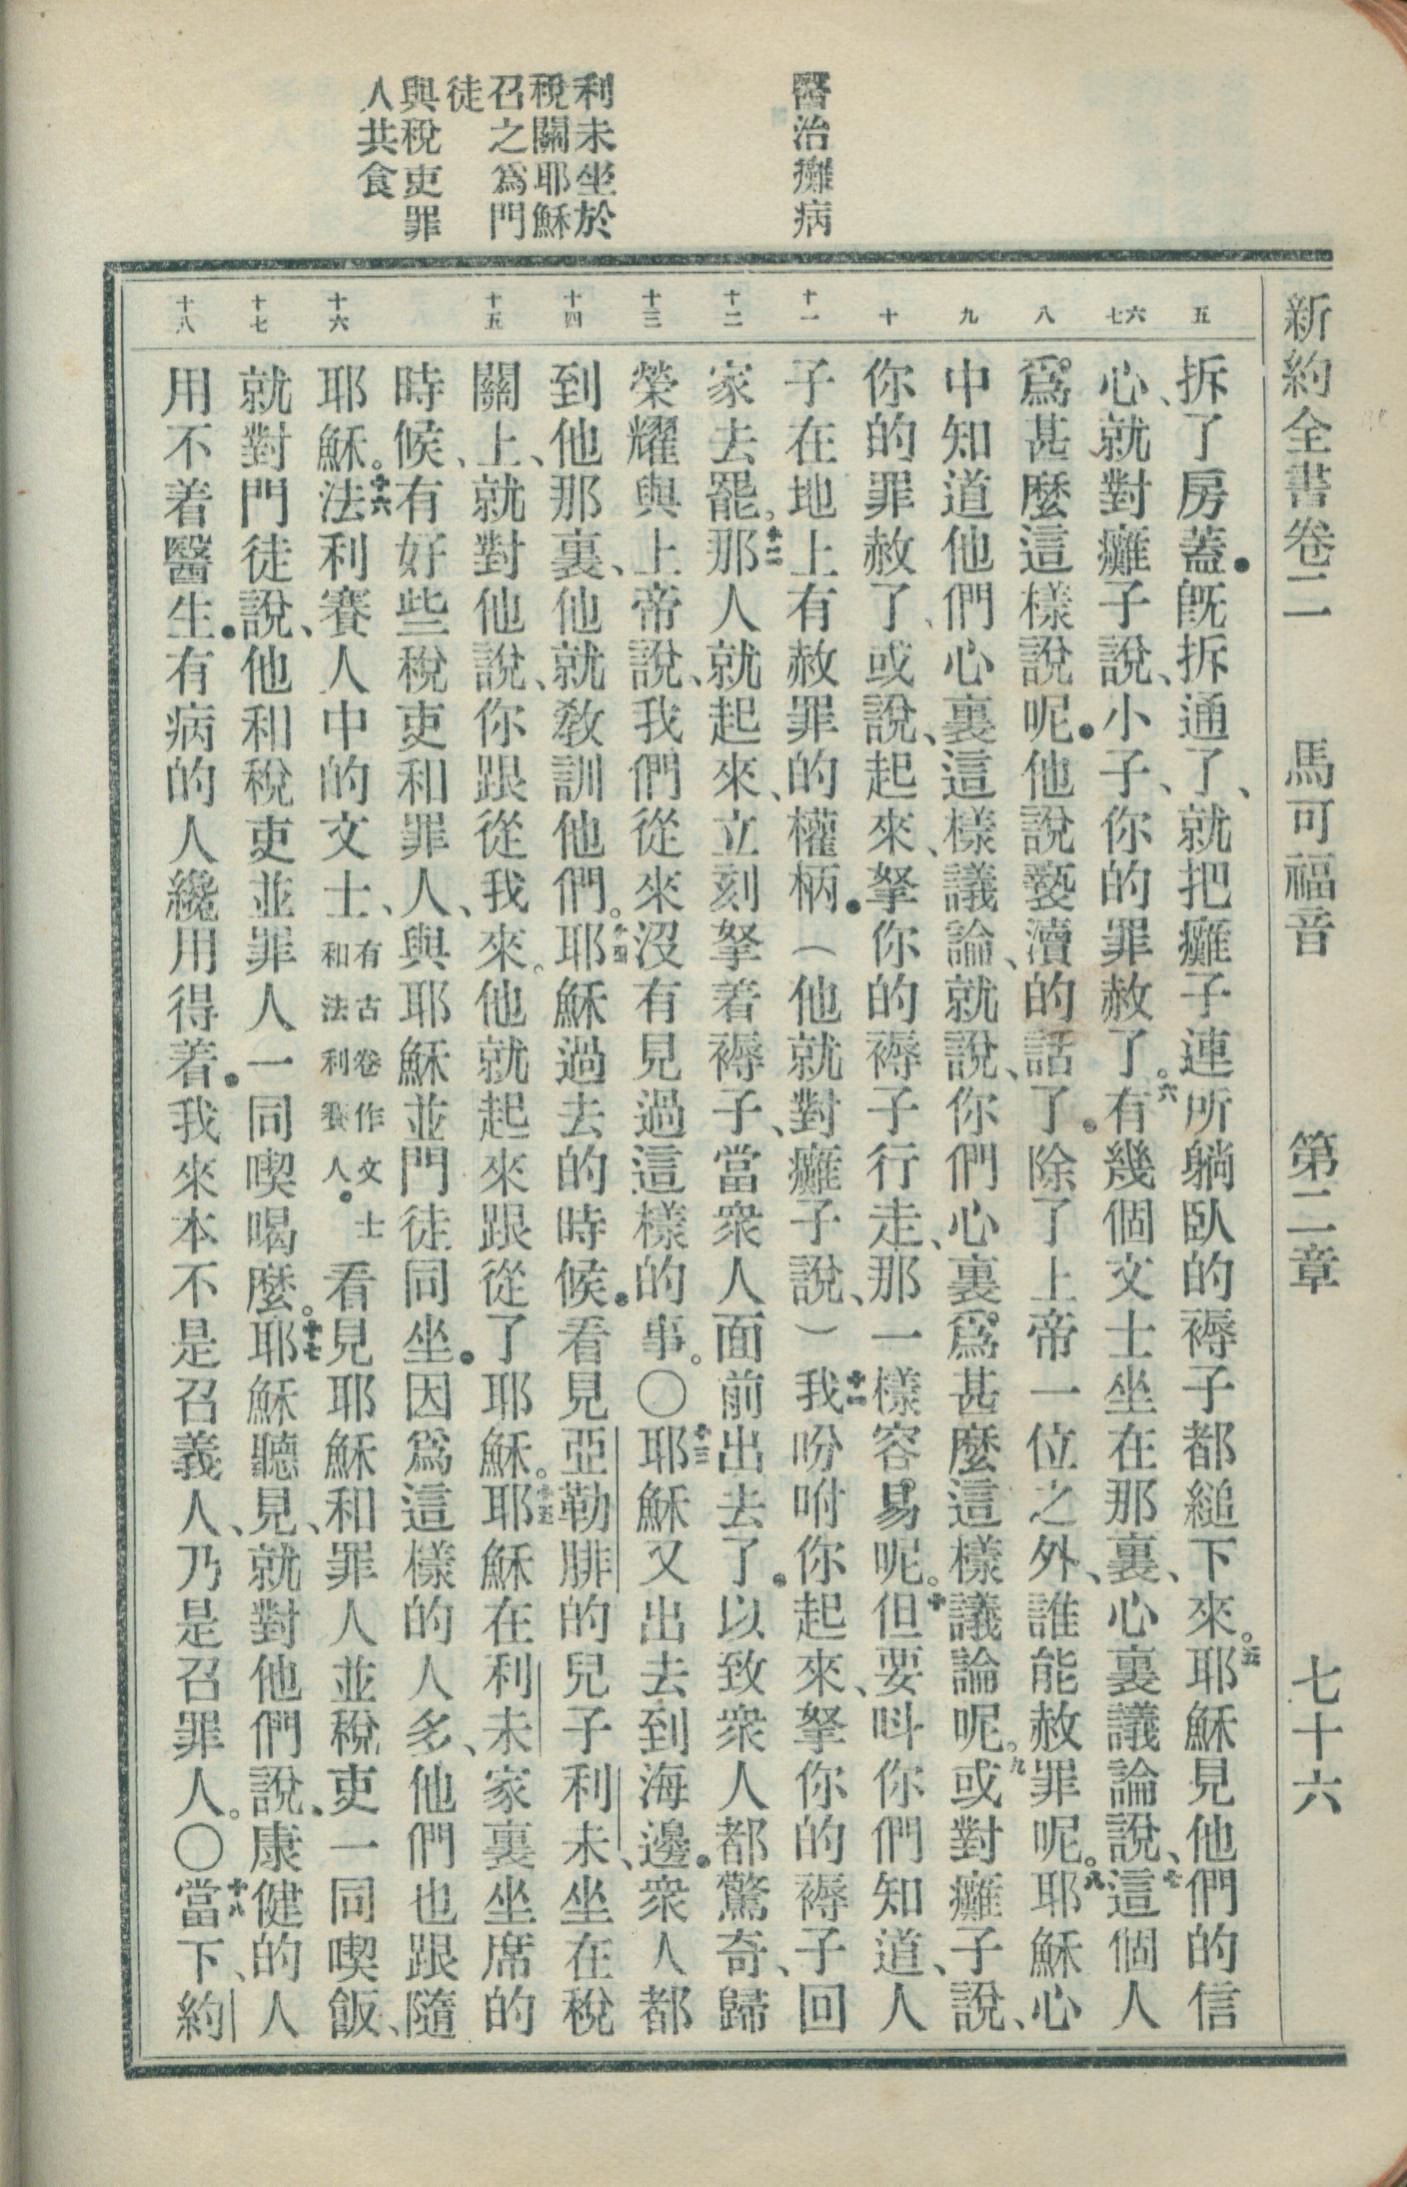 新約全書卷二　馬可福音　第二章　七十六
醫治癱病
利未坐於
稅關耶穌
召之爲門
徒
與稅吏罪
人共食
五　六七　八　九　十　十一　十二　十三　十四　十五　十六　十七　十八
拆了房蓋．旣拆通了、就把癱子連所躺臥的褥子都縋下來。五耶穌見他們的信
心、就對癱子說、小子、你的罪赦了。六有幾個文士坐在那裏、心裏議論說、七這個人
爲甚麼這樣說呢．他說褻瀆的話了．除了上帝一位之外、誰能赦罪呢。八耶穌心
中知道他們心裏這樣議論、就說、你們心裏爲甚麼這樣議論呢。九或對癱子說、
你的罪赦了、或說、起來、拏你的褥子行走、那一樣容易呢。十但要呌你們知道、人
子在地上有赦罪的權柄．（他就對癱子說、）十一我吩咐你起來、拏你的褥子回
家去罷。十二那人就起來、立刻拏着褥子、當衆人面前出去了．以致衆人都驚奇、歸
榮耀與上帝說、我們從來沒有見過這樣的事。〇十三耶穌又出去到海邊．衆人都
到他那裏、他就敎訓他們。十四耶穌過去的時候．看見亞勒腓的兒子利未、坐在稅
關上、就對他說、你跟從我來。他就起來跟從了耶穌。十五耶穌在利未家裏坐席的
時候、有好些稅吏和罪人、與耶穌並門徒同坐．因爲這樣的人多、他們也跟隨
耶穌。十六法利賽人中的文士、有古卷作文士和法利賽人．看見耶穌和罪人並稅吏一同喫飯、
就對門徒說、他和稅吏並罪人一同喫喝麼。十七耶穌聽見、就對他們說、康健的人
用不着醫生．有病的人纔用得着．我來本不是召義人、乃是召罪人。〇十八當下、約